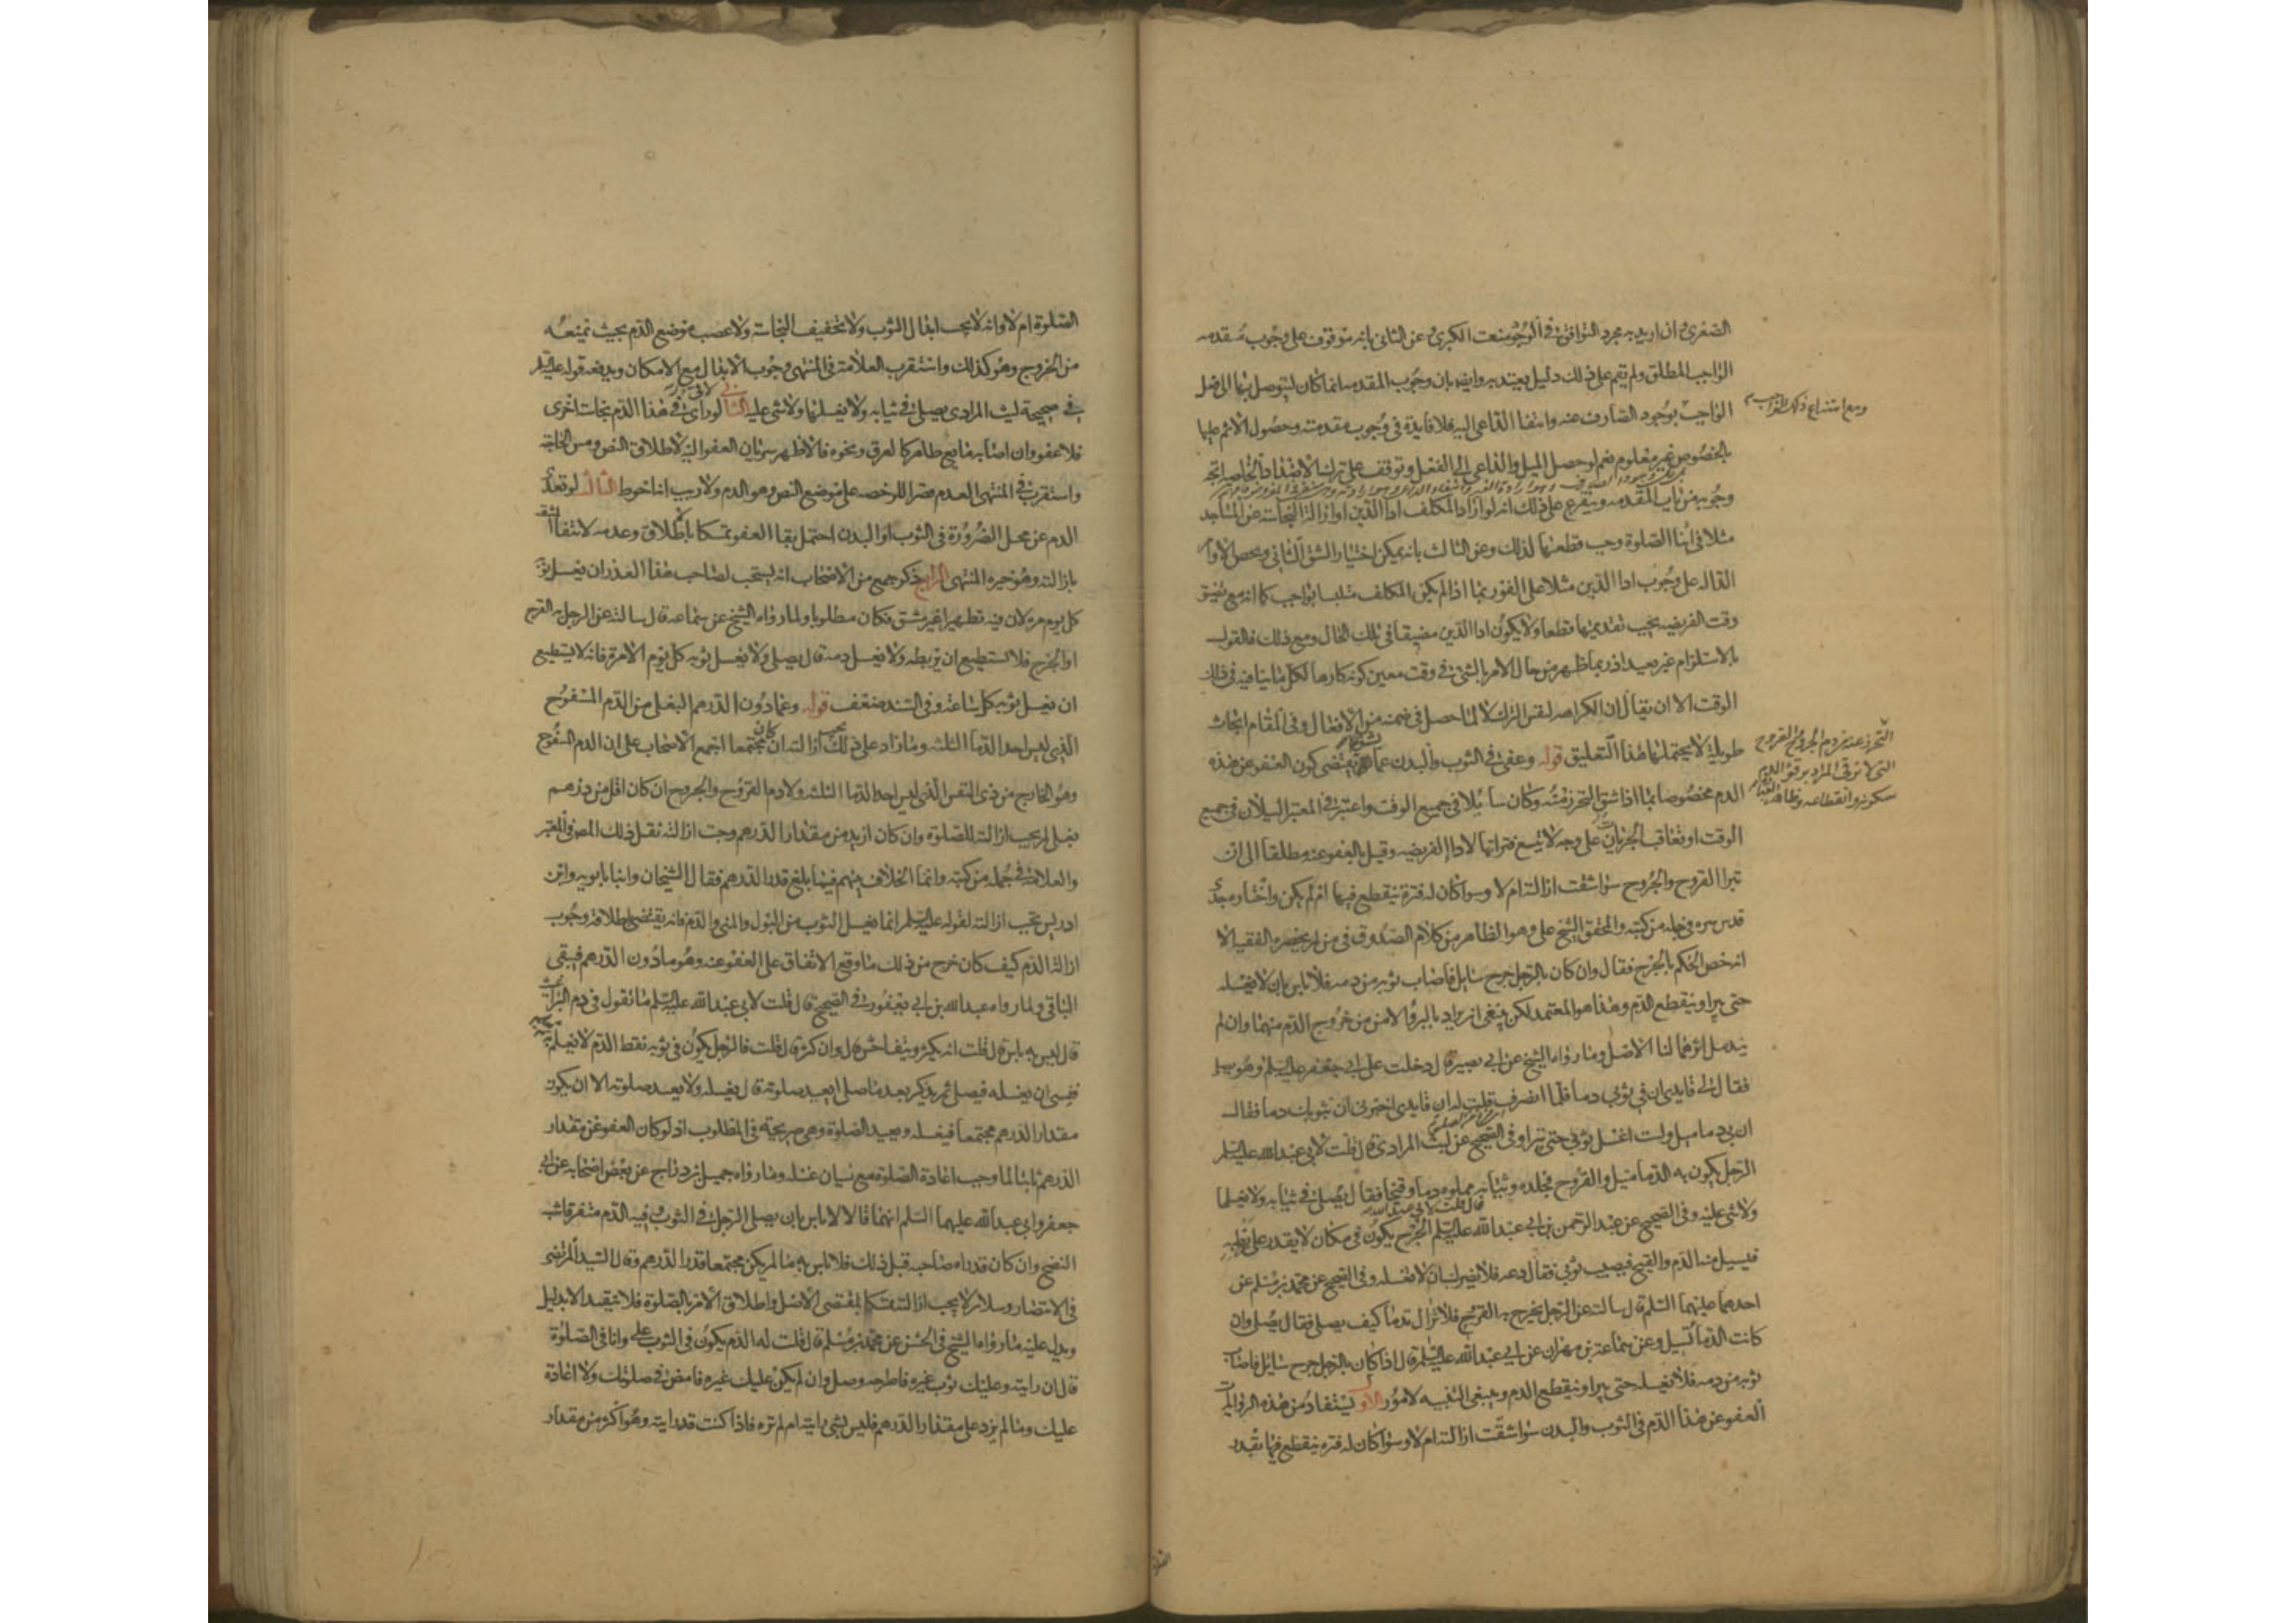 الصغرى ان اريد به مجرد التوافق في الوجود منعت الكبرى وعن الثاني بانه موقوف على وجوب مقدمه
الواجب المطلق ولم يقم على ذلك دليل يعتد به وايضا فان وجوب المقدمه انما كان ليتوصل بها الى فعل
الواجب بوجود الصارف عنه وانتفا الداعي اليه فلا فايدة في وجوب مقدمته وحصول الاثم عليها
ومع امتناع ذلك الواجب
بالخصوص غير معلوم نعم لو حصل الميل والداعي الى الفعل وتوقف على ترك الاضداد الخاصه اتجه
وجوبه من باب المقدمه ويتفرع على ذلك انه لو اراد المكلف ادا الدين او ازالة النجاسة عن المساجد
مثلا في اثنا الصلوة وجب قطعها لذلك وعن الثالث بانه يمكن اختيار الشق الثاني ويخص الاوامر
الداله على وجوب ادا الدين مثلا على الفور بما اذا لم يكن المكلف متلبسا بواجب كما انه مع تضيق
وقت الفريضه يجب تقديمها قطعا ولا يكون ادا الدين مضيقا في تلك الحال ومع ذلك فالقول
بالاستلزام غير بعيد اذ ربما ظهر من حال الامر بالشي في وقت معين كونه كارها لكل ما ينافيه في ذلك
الوقت الا ان يقال ان الكراهه لنفس الترك لا لما حصل في ضمنه من الافعال وفي المقام ابحاث
طويلة لا يحتملها هذا التعليق قوله وعفي في الثوب والبدن عما يقتضي كون العفو عن هذه
الدم مخصوصا بما اذا شق التحرز منه وكان سايلا في جميع الوقت واعتبر في المعتبر السيلان في جميع
التحرز عنه من دم الجروح والقروح
التي لا ترقى المراد برقو الدم
سكونه وانقطاعه
الوقت او تعاقب الجريان على وجه لا يتسع فتراتها لاداء الفريضه وقيل بالعفو عنه مطلقا الى ان
تبرا القروح والجروح سوا شقت ازالته ام لا وسوا كان له فترة ينقطع فيها ام لم يكن واختاره جدي
قدس سره في جملة من كتبه والمحقق الشيخ علي وهو الظاهر من كلام الصدوق في من لا يحضره الفقيه الا
انه خص الحكم بالجرح فقال وان كان بالرجل جرح سايل فاصاب ثوبه من دمه فلا باس بان لا يغسله
حتى يبرا وينقطع الدم وهذا هو المعتمد لكن ينبغي ان يراد بالبرؤ الامن من خروج الدم منهما وان لم
يندمل اثرهما لنا الاصل وما رواه الشيخ عن ابي بصير قال دخلت على ابي جعفر عليه السلم وهو يصلي
فقال لي قايدي ان في ثوبه دما فلما انصرف قلت له ان قايدي اخبرني ان بثوبك دما فقال
ان بي دماميل ولست اغسل ثوبي حتى تبرا وفي الصحيح عن ليث المرادي قال قلت لابي عبد الله عليه السلم
الرجل يكون به الدماميل والقروح فجلده وثيابه مملوه دما وقيحا فقال يصلي في ثيابه ولا يغسلها
ولا شي عليه وفي الصحيح عن عبد الرحمن بن ابي عبد الله قال قلت لابي عبد الله عليه السلم الجرح يكون في مكان لا يقدر على ربطه
فيسيل منه الدم والقيح فيصيب ثوبي فقال دعه فلا يضرك ان لا تغسله وفي الصحيح عن محمد بن مسلم عن
احدهما عليهما السلم قال سالته عن الرجل يخرج به القروح فلا تزال تدمى كيف يصلي فقال يصلي وان
كانت الدما تسيل وعن سماعة بن مهران عن ابي عبد الله عليه السلم قال اذا كان بالرجل جرح سايل فاصاب
ثوبه من دمه فلا يغسله حتى يبرا وينقطع الدم وينبغي التنبيه لامور الاول يستفاد من هذه الروايات
العفو عن هذا الدم في الثوب والبدن سوا شقت ازالته ام لا وسوا كان له فترة ينقطع فيها بقدر
الصلوة
الصلوة ام لا وانه لا يجب ابدال الثوب ولا تخفيف النجاسة ولا عصب موضع الدم بحيث تمنعه
من الخروج وهو كذلك واستقرب العلامة في المنتهى وجوب الابدال مع الامكان ويدفعه قوله عليه السلم
في صحيحة ليث المرادي يصلي في ثيابه ولا يغسلها ولا شي عليه الثاني لو راى في هذا الدم نجاسة اخرى
فلا عفو وان اصابه مايع طاهر كالعرق ونحوه فالاظهر سريان العفو اليه لاطلاق النص ومس الحاجة
واستقرب في المنتهى العدم قصرا للرخصه على موضع النص وهو الدم ولا ريب انه احوط الثالث لو تعدى
الدم عن محل الضرورة في الثوب او البدن احتمل بقا العفو تمسكا بالاطلاق وعدمه لانتفا المشقة
بازالته وهو خيره المنتهى الرابع ذكر جمع من الاصحاب انه يستحب لصاحب هذا العذر ان يغسل ثوبه
كل يوم مره لان فيه تطهيرا غير مشق فكان مطلوبا ولما رواه الشيخ عن سماعه قال سالته عن الرجل به القرح
او الجرح فلا يستطيع ان يربطه ولا يغسل دمه قال يصلي ولا يغسل ثوبه كل يوم الا مرة فانه لا يستطيع
ان يغسل ثوبه كل ساعة وفي السند ضعف قوله وعما دون الدرهم البغلي من الدم المسفوح
الذي ليس احد الدما الثلثه وما زاد على ذلك يجب ازالته ان كان مجتمعا اجمع الاصحاب على ان الدم المسفوح
وهو الخارج من ذي النفس الذي ليس احد الدما الثلثه ولا دم القروح والجروح ان كان اقل من درهم
بغلي لم يجب ازالته للصلوة وان كان ازيد من مقدار الدرهم وجبت ازالته نقل ذلك المصنف في المعتبر
والعلامة في جمله من كتبه وانما الخلاف بينهم فيما بلغ قدر الدرهم فقال الشيخان وابنا بابويه وابن
ادريس تجب ازالته لقوله عليه السلم انما يغسل الثوب من البول والمني والدم فانه يقتضي باطلاقه وجوب
ازالة الدم كيف كان خرج من ذلك ما وقع الاتفاق على العفو عنه وهو ما دون الدرهم فيبقى
الباقي ولما رواه عبد الله بن ابي يعفور في الصحيح قال قلت لابي عبد الله عليه السلم ما تقول في دم البراغيث
قال ليس به باس قال قلت انه يكثر ويتفاحش قال وان كثر قال قلت فالرجل يكون في ثوبه نقط الدم لا يعلم به ثم يعلم
فنسي ان يغسله فيصلي ثم يذكر بعد ما صلى ايعيد صلوته قال يغسله ولا يعيد صلوته الا ان يكون
مقدار الدرهم مجتمعا فيغسله ويعيد الصلوة وهي صريحة في المطلوب اذ لو كان العفو عن مقدار
الدرهم ثابتا لما وجب اعادة الصلوة مع نسيان غسله وما رواه جميل بن دراج عن بعض اصحابه عن ابي
جعفر وابي عبد الله عليهما السلم انهما قالا لا باس بان يصلي الرجل في الثوب وفيه الدم متفرقا شبه
النضح وان كان قد راه صاحبه قبل ذلك فلا باس به ما لم يكن مجتمعا قدر الدرهم وقال السيد المرتضى
في الانتصار وسلار لا يجب ازالته تمسكا بمقتضى الاصل واطلاق الامر بالصلوة فلا يتقيد الا بدليل
ويدل عليه ما رواه الشيخ في الحسن عن محمد بن مسلم قال قلت له الدم يكون في الثوب علي وانا في الصلوة
قال ان رايته وعليك ثوب غيره فاطرحه وصل وان لم يكن عليك غيره فامض في صلوتك ولا اعادة
عليك وما لم يزد على مقدار الدرهم فليس بشي رايته ام لم تره فاذا كنت قد رايته وهو اكثر من مقدار